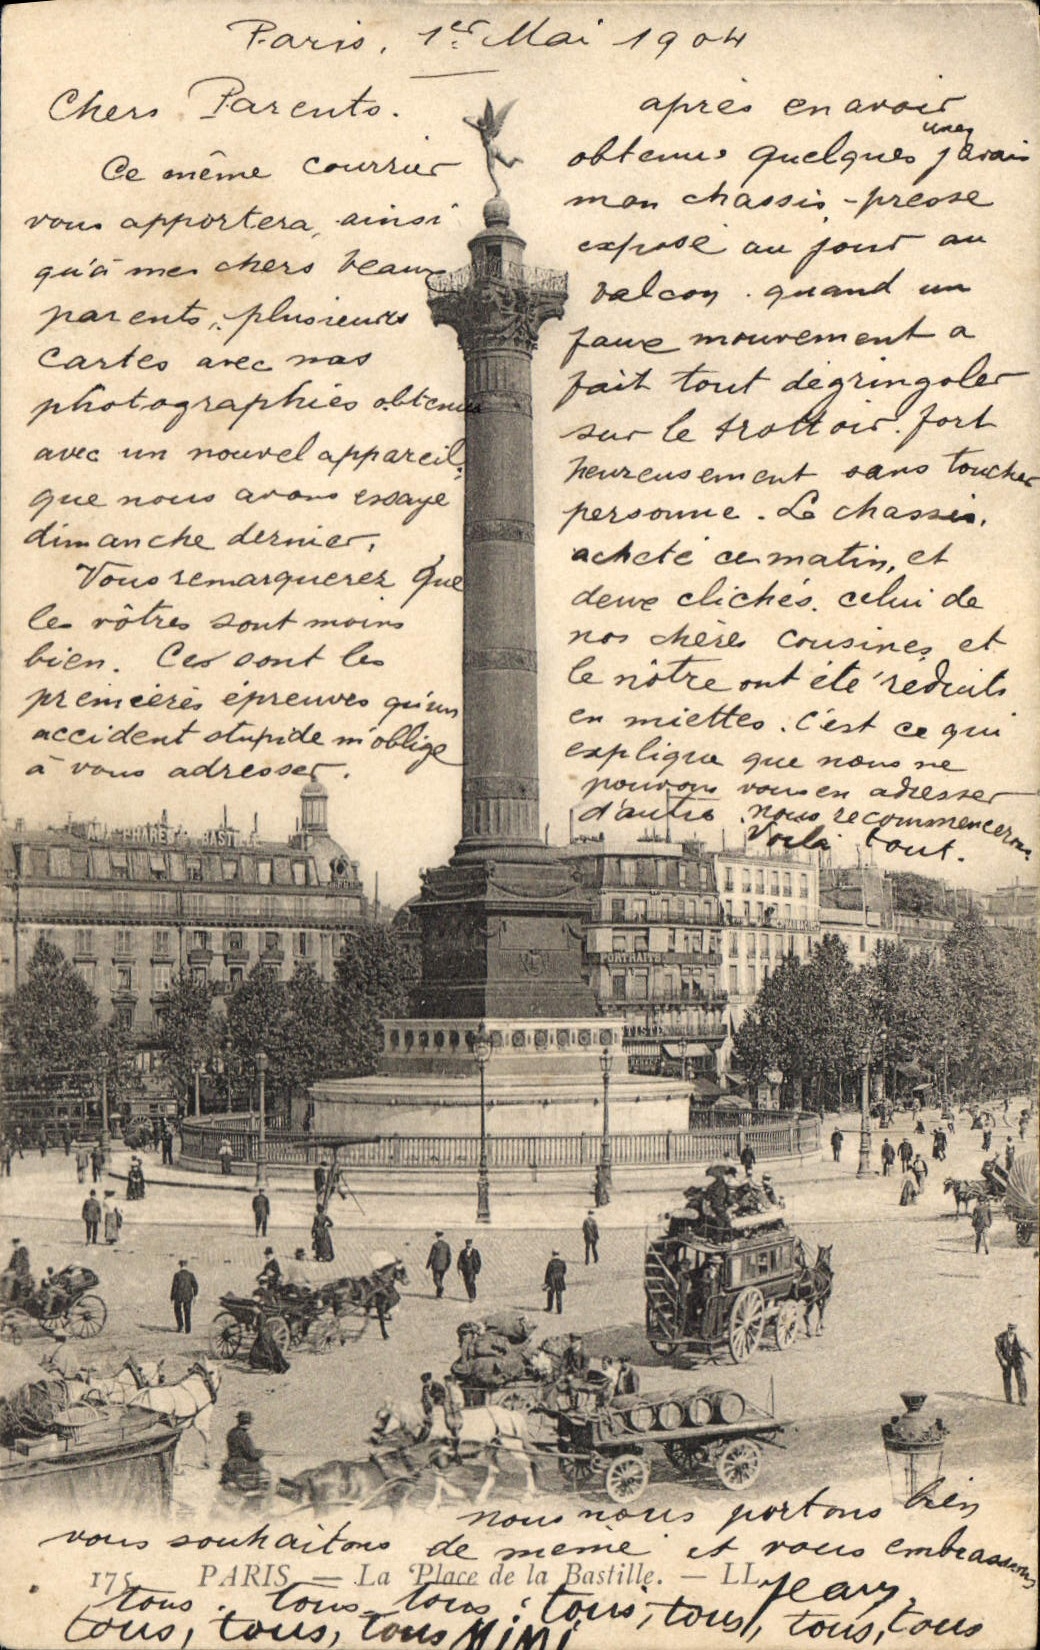 Paris, 1er Mai 1904
Chers Parents.
Ce même courrier
vous apportera, ainsi
qu'à mes chers beaux
parents, plusieurs
cartes avec nos
photographies obtenues
avec un nouvel appareil
que nous avons essayé
dimanche dernier.
Vous remarquerez que
les vôtres sont moins
bien. Ces sont les
premières épreuves qu'un
accident stupide m'oblige
à vous adresser.
après en avoir
obtenus quelques unes j'avais
mon chassis-presse
exposé au jour au
balcon. quand un
faux mouvement a
fait tout dégringoler
sur le trottoir. fort
heureusement sans toucher
personne. Le chassis,
acheté ce matin, et
deux clichés. celui de
nos chères cousines et
le nôtre ont été réduits
en miettes. C'est ce qui
explique que nous ne
pouvons vous en adresser
d'autres nous recommencerons
Voilà tout.
ANA PHARE DE LA BASTILLE
PORTRAITS
nous nous portons bien
vous souhaitons de même et vous embrassons
175 PARIS. — La Place de la Bastille. — LL.
tous. tous tous : tous, tous, tous, tous
Jean,
tous, tous, tous MIMI